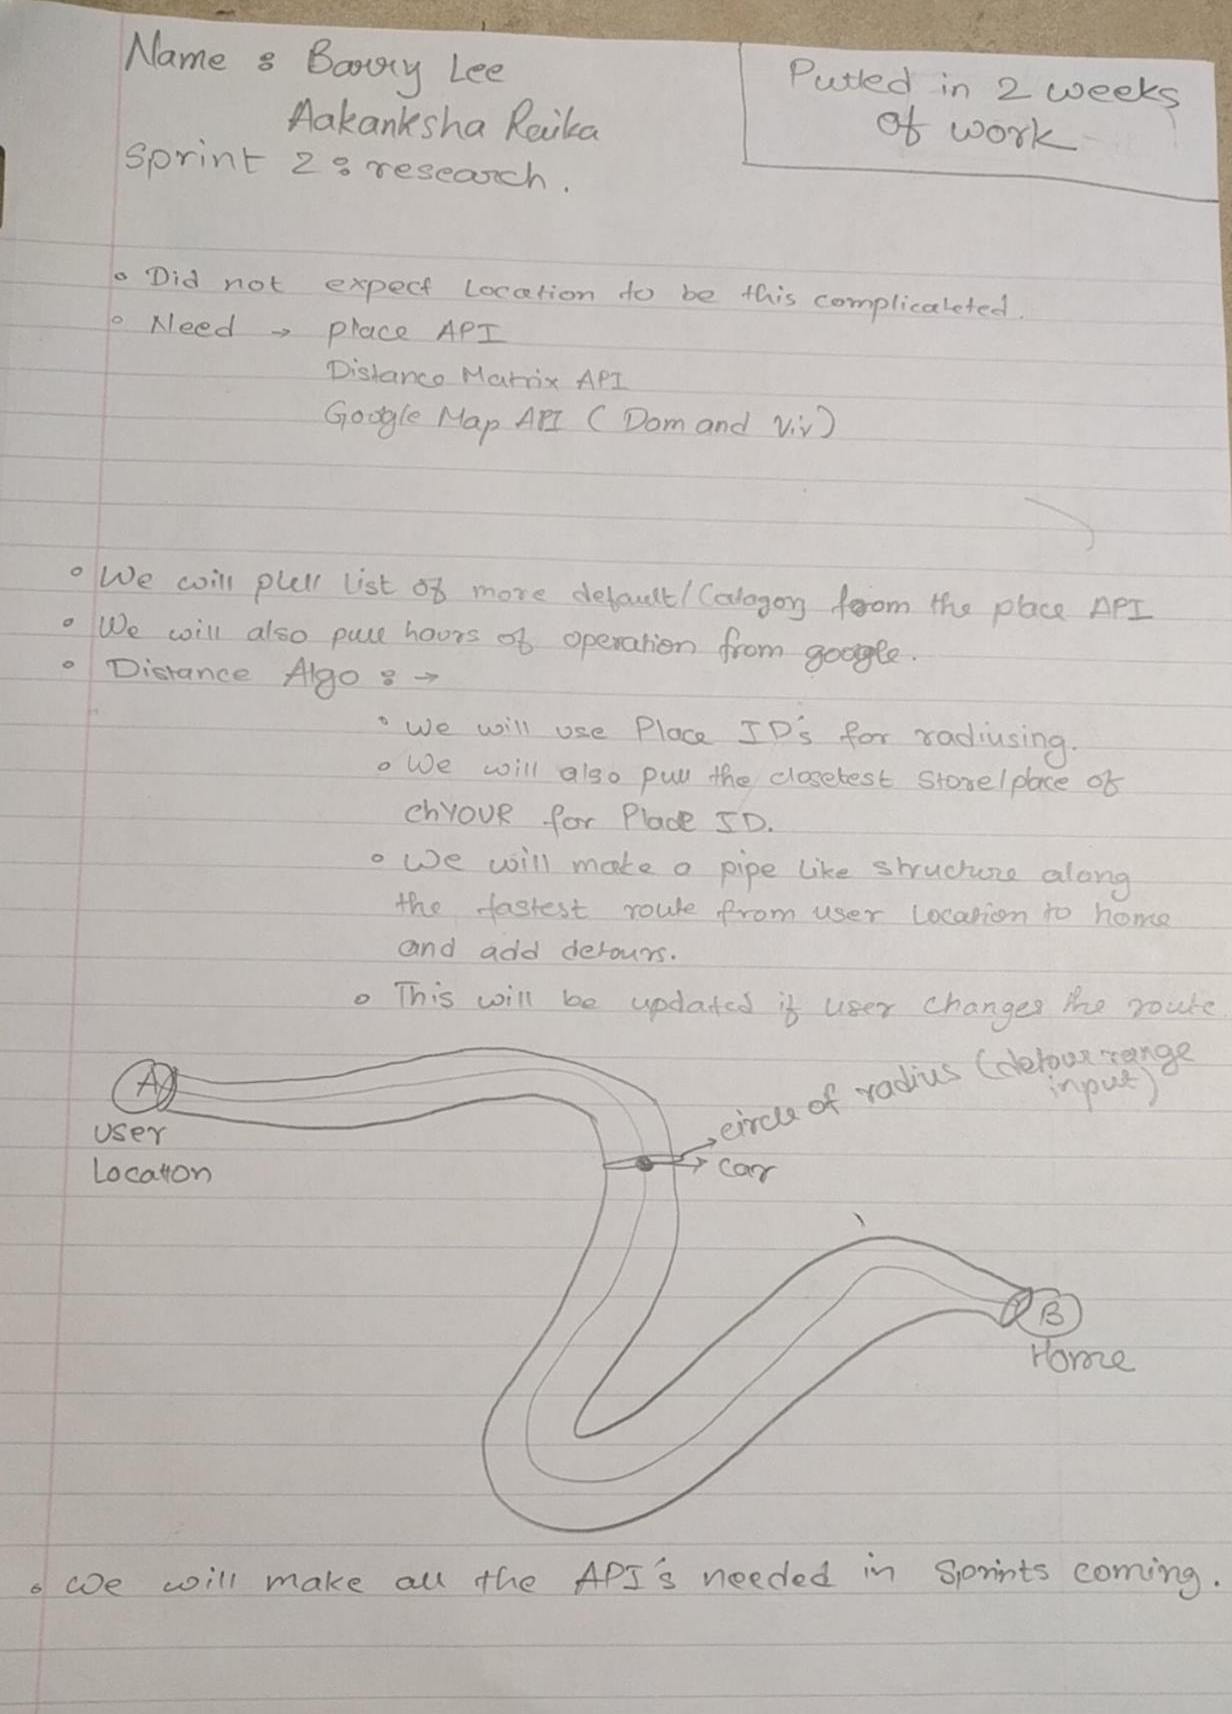 Name : Barry Lee
Aakanksha Raika
Sprint 2 : research.
Putted in 2 weeks
of work
Did not expect Location to be this complicateted.
Need → place API
Distance Matrix API
Google Map API ( Dom and Viv)
We will pull list of more default/Catagory from the place API
We will also pull hours of operation from google.
Distance Algo : →
We will use Place ID's for radiusing.
We will also pull the closetest store/place of
chYOUR for Place ID.
We will make a pipe like structure along
the fastest route from user location to home
and add detours.
This will be updated if user changes the route
circle of radius (detour range
input)
A
car
user
Location
B
Home
We will make all the API's needed in Sprints coming.